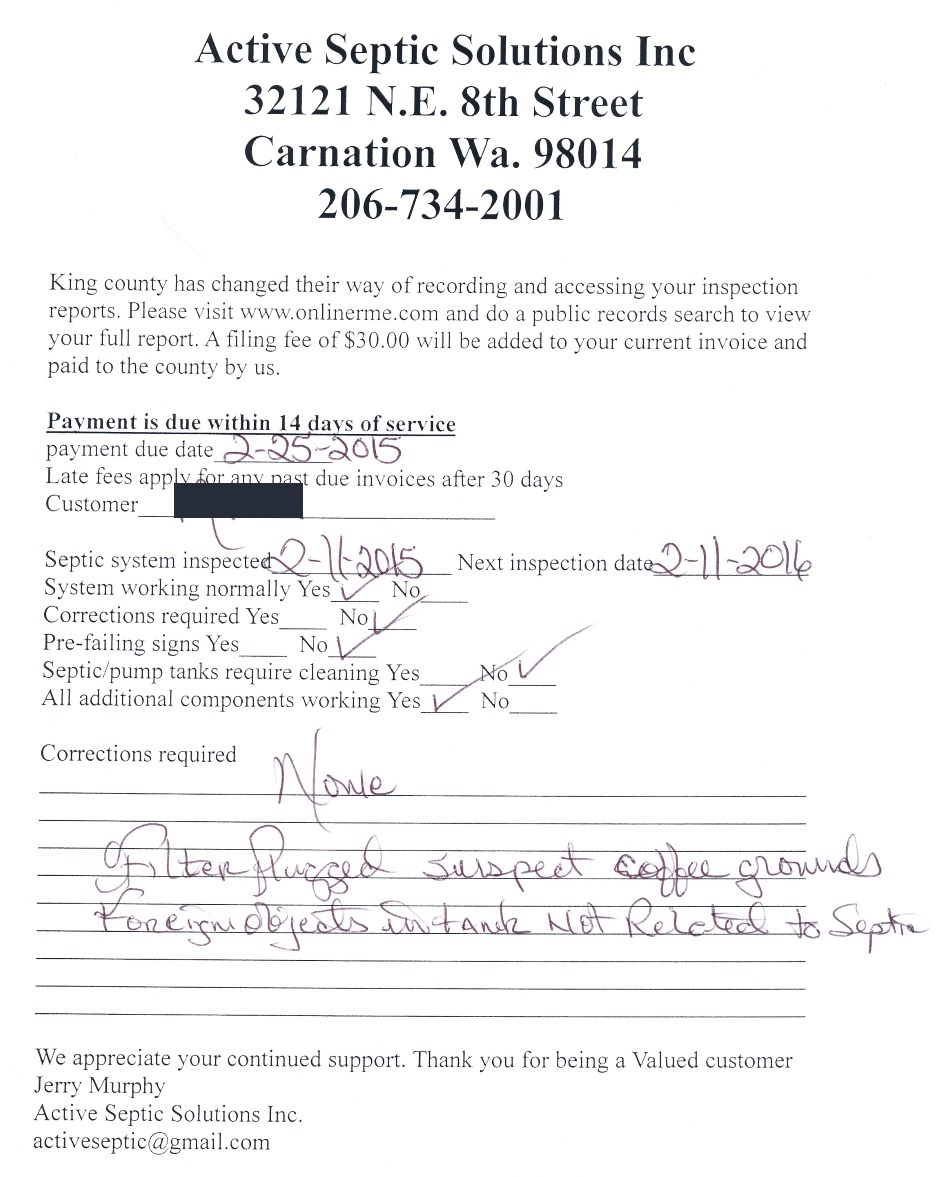 Active Septic Solutions Inc
32121 N.E. 8th Street
Carnation Wa. 98014
206-734-2001
King county has changed their way of recording and accessing your inspection
reports. Please visit www.onlinerme.com and do a public records search to view
your full report. A filing fee of $30.00 will be added to your current invoice and
paid to the county by us.
Payment is due within 14 days of service
payment due date 2-25-2015
Late fees apply for any past due invoices after 30 days
Customer
Septic system inspected 2-11-2015 Next inspection date 2-11-2016
System working normally Yes ✓ No
Corrections required Yes No ✓
Pre-failing signs Yes No ✓
Septic/pump tanks require cleaning Yes No ✓
All additional components working Yes ✓ No
Corrections required None
Filter plugged suspect coffee grounds
Foreign objects in tank Not Related to Septic
We appreciate your continued support. Thank you for being a Valued customer
Jerry Murphy
Active Septic Solutions Inc.
activeseptic@gmail.com